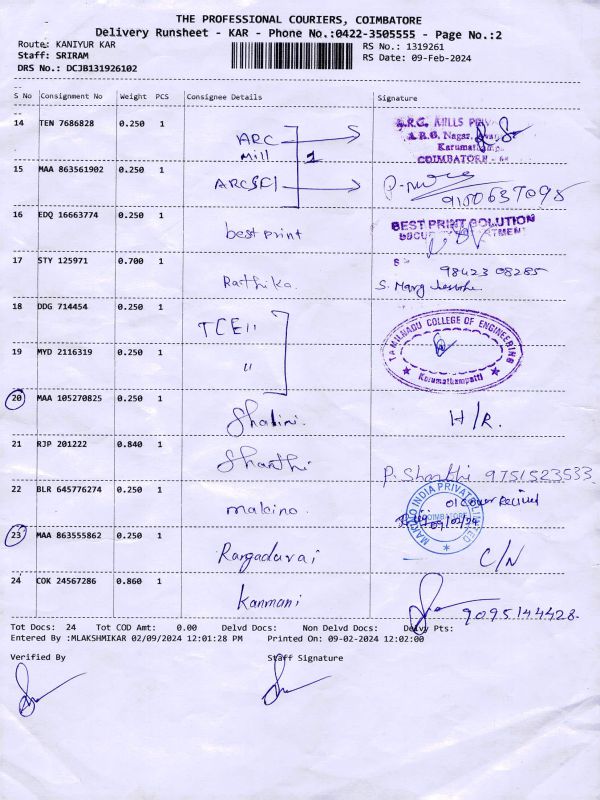 THE PROFESSIONAL COURIERS, COIMBATORE
Delivery Runsheet - KAR - Phone No.:0422-3505555 - Page No.:2
Route: KANIYUR KAR
RS No.: 1319261
Staff: SRIRAM
RS Date: 09-Feb-2024
DRS No.: DCJB131926102
S No Consignment No Weight PCS Consignee Details Signature
14 TEN 7686828 0.250 1 ARC Mill 1
A.R.C. MILLS
A.R.C. Nagar,
Karumatham
COIMBATORE
15 MAA 863561902 0.250 1
9150637095
16 EDQ 16663774 0.250 1 best print
BEST PRINT SOLUTION
17 STY 125971 0.700 1 Rathika.
98423 08285
S. Mary
18 DDG 714454 0.250 1 TCE 11
TAMILNADU COLLEGE OF ENGINEERING
Karumathampatti
19 MYD 2116319 0.250 1 11
20 MAA 105270825 0.250 1 Shalini. H/R.
21 RJP 201222 0.840 1 Shanthi P. Shanthi 9751523533
22 BLR 645776274 0.250 1 makino.
MAKINO INDIA PRIVATE LIMITED
COIMBATORE
01 cover Recived
09/02/24
23 MAA 863555862 0.250 1 Rangadurai C/N
24 COK 24567286 0.860 1 Kanmani 9095144428.
Tot Docs: 24 Tot COD Amt: 0.00 Delvd Docs: Non Delvd Docs: Delvy Pts:
Entered By :MLAKSHMIKAR 02/09/2024 12:01:28 PM Printed On: 09-02-2024 12:02:00
Verified By Staff Signature